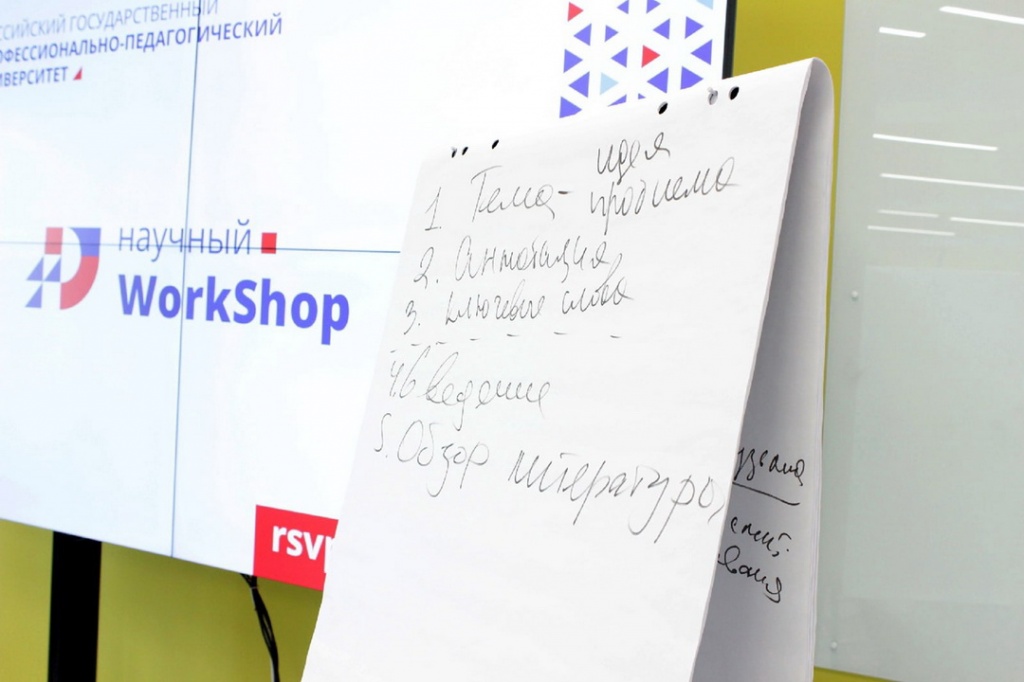 ССИЙСКИЙ ГОСУДАРСТВЕННЫЙ
ОФЕССИОНАЛЬНО-ПЕДАГОГИЧЕСКИЙ
ИВЕРСИТЕТ
научный
WorkShop
rsv
1. Тема- идея
проблема
2. Аннотация,
3. ключевые слова
4. Введение
5. Обзор литературы